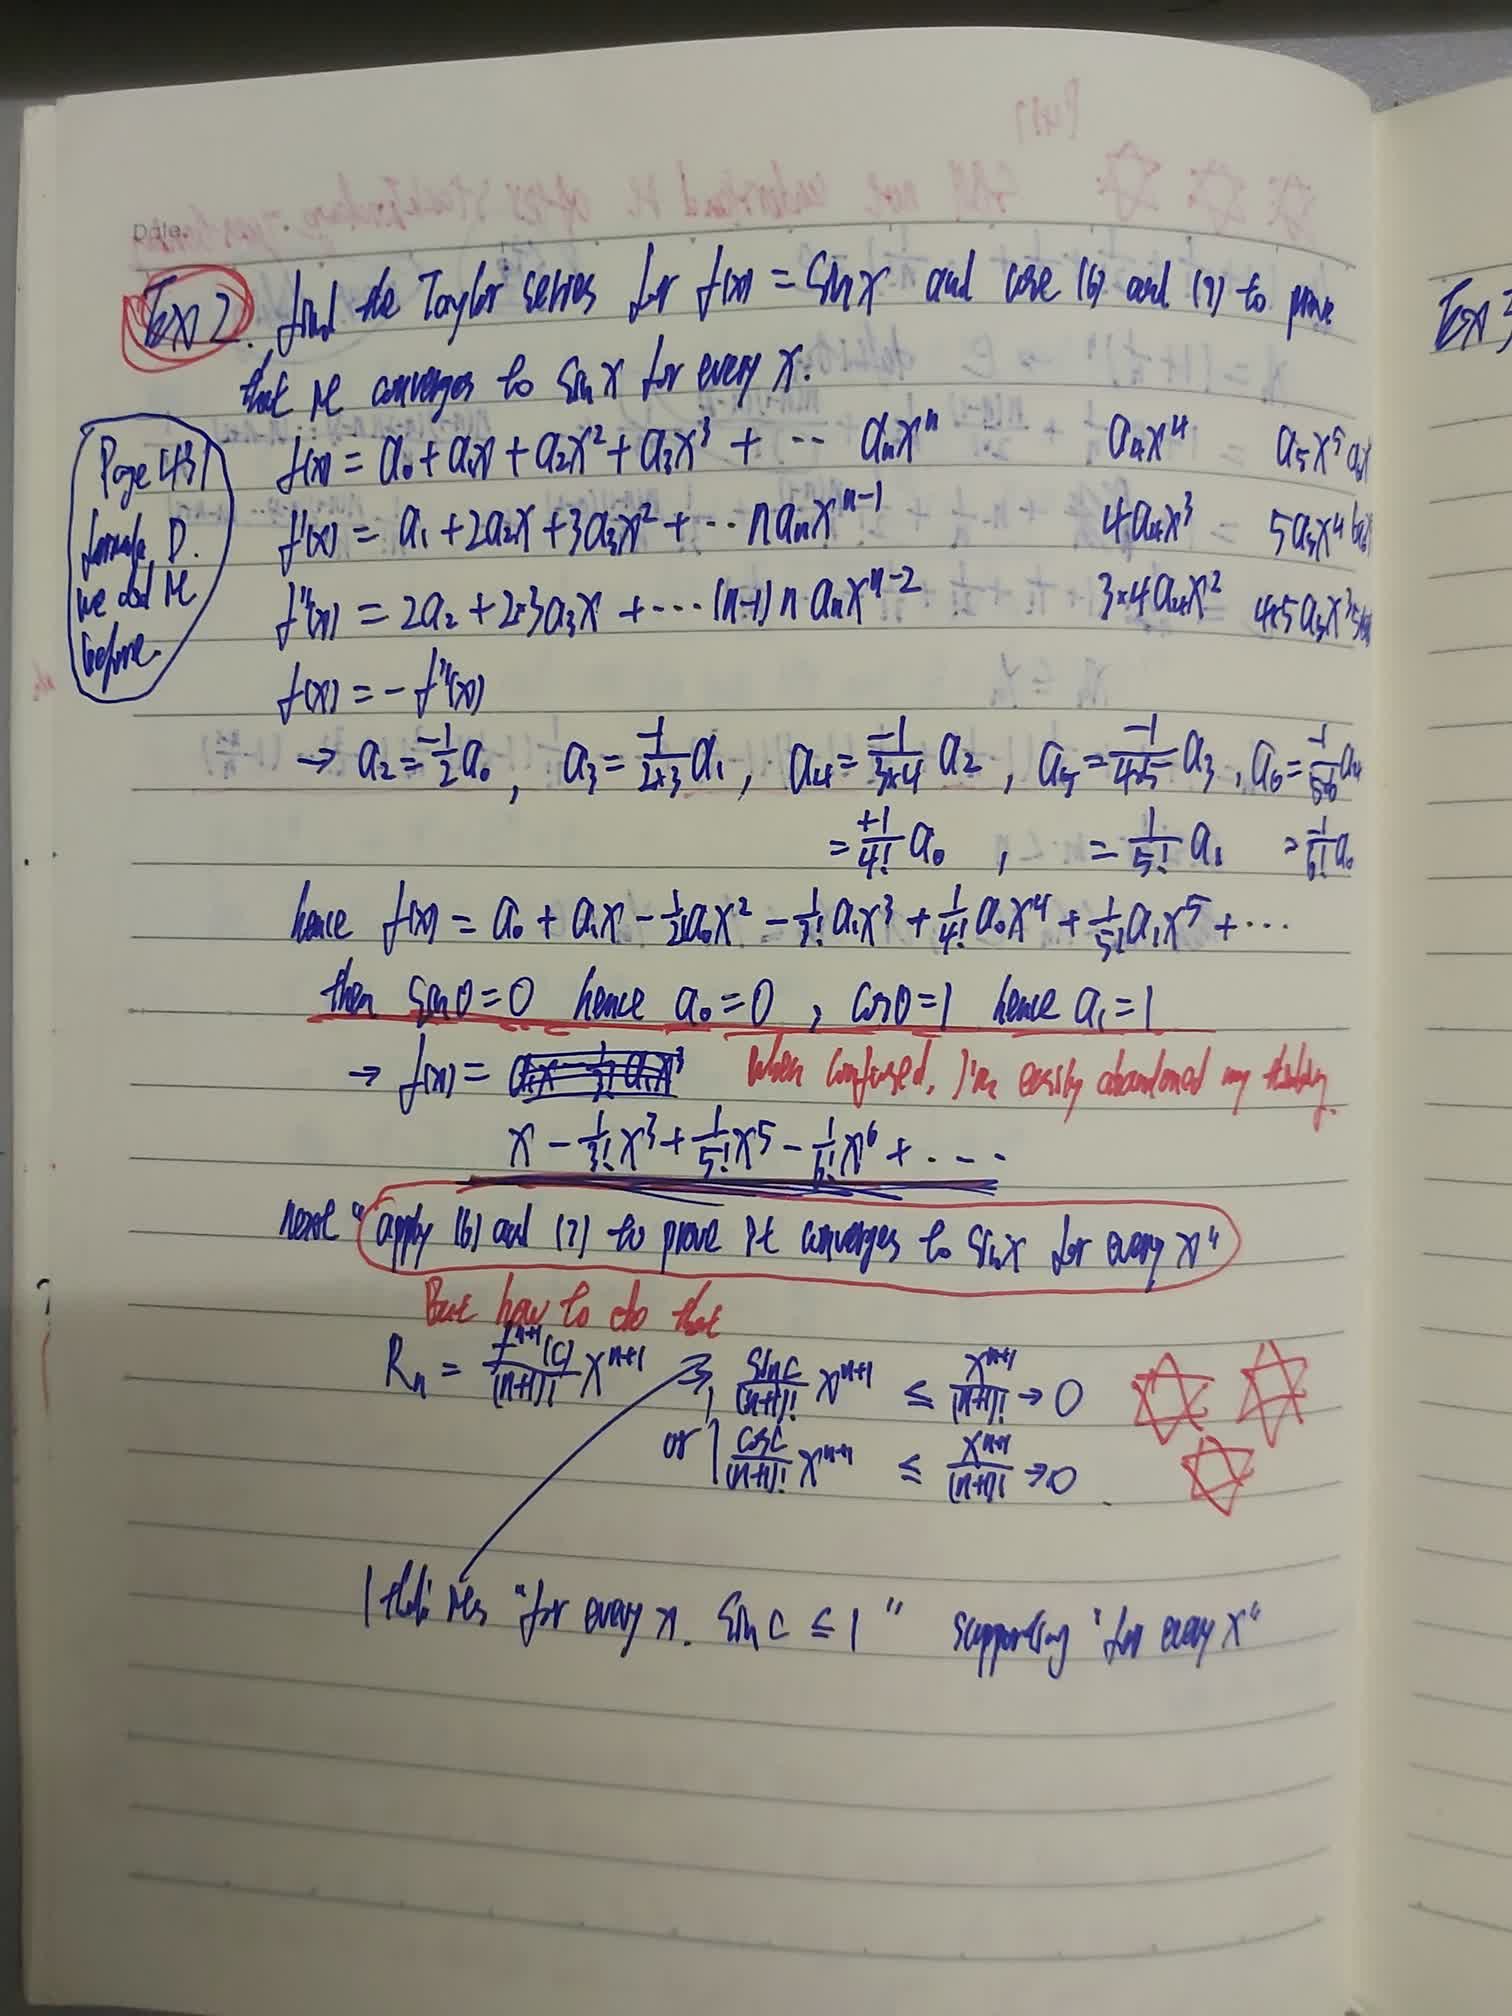 Date.
Ex 2. find the Taylor series for f(x) = sin x and use (6) and (7) to prove
that it converges to sin x for every x.
Page 431
formula D.
we did it
before.
f(x) = a₀ + a₁x + a₂x² + a₃x³ + ··· aₙxⁿ a₄x⁴ a₅x⁵
f'(x) = a₁ + 2a₂x + 3a₃x² + ··· naₙxⁿ⁻¹ 4a₄x³ 5a₅x⁴
f''(x) = 2a₂ + 2×3a₃x + ···· (n-1)n aₙxⁿ⁻² 3×4a₄x² 4×5a₅x³
f(x) = - f''(x)
→ a₂ = -1/2 a₀, a₃ = -1/2×3 a₁, a₄ = -1/3×4 a₂, a₅ = -1/4×5 a₃, a₆ = -1/5×6 a₄
= +1/4! a₀, = 1/5! a₁ = -1/6! a₀
hence f(x) = a₀ + a₁x - 1/2! a₀x² - 1/3! a₁x³ + 1/4! a₀x⁴ + 1/5! a₁x⁵ + ···
then sin 0 = 0 hence a₀ = 0, cos 0 = 1 hence a₁ = 1
→ f(x) = a₁x - 1/3! a₁x³ When confused, I'm easily abandoned my
x - 1/3! x³ + 1/5! x⁵ - 1/6! x⁶ + ····
next "apply (6) and (7) to prove it converges to sin x for every x"
But how to do that
Rₙ = fⁿ⁺¹(c)/(n+1)! xⁿ⁺¹ ⇒ sin c/(n+1)! xⁿ⁺¹ ≤ xⁿ⁺¹/(n+1)! → 0
or cos c/(n+1)! xⁿ⁺¹ ≤ xⁿ⁺¹/(n+1)! → 0
I think it's "for every x. sin c ≤ 1" supporting "for every x"